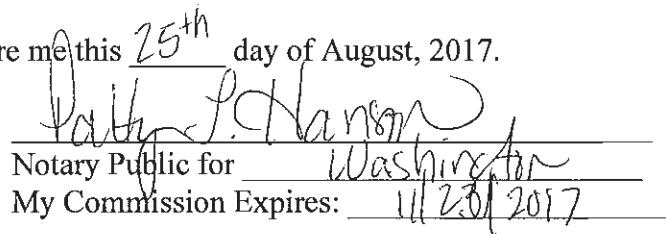 re me this 25th day of August, 2017.
Patty L. Hanson
Notary Public for Washington
My Commission Expires: 11/23/2017